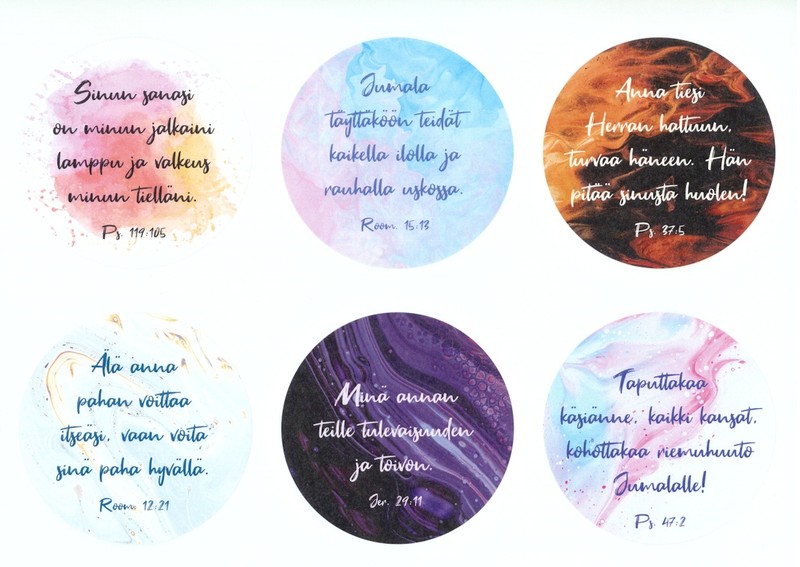 Sinun sanasi
on minun jalkaini
lamppu ja valkeus
minun tielläni.
Ps. 119:105
Jumala
täyttäköön teidät
kaikella ilolla ja
rauhalla uskossa.
Room. 15:13
Anna tiesi
Herran haltuun,
turvaa häneen. Hän
pitää sinusta huolen!
Ps. 37:5
Älä anna
pahan voittaa
itseäsi, vaan voita
sinä paha hyvällä.
Room. 12:21
Minä annan
teille tulevaisuuden
ja toivon.
Jer. 29:11
Taputtakaa
käsiänne, kaikki kansat,
kohottakaa riemuhuuto
Jumalalle!
Ps. 47:2